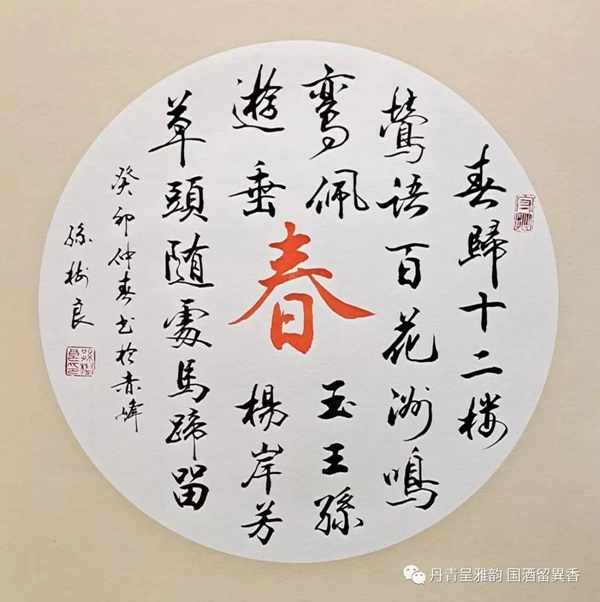 春歸十二楼
鶯語百花洲鳴
鸾佩玉王孫
遊垂楊岸芳
草頭随處馬蹄留
春
癸卯仲春书於赤峰
孫樹良
丹青呈雅韵 国酒留異香